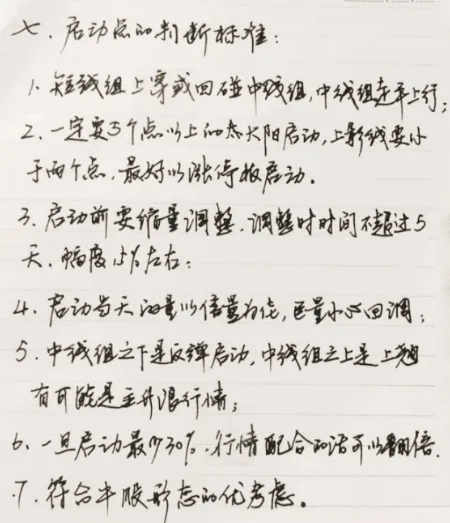 七、启动点的判断标准:
1、短线组上穿或回碰中线组,中线组走平上行;
2、一定要3个点以上的大阳启动,上影线要小
于两个点,最好以涨停板启动。
3、启动前要缩量调整,调整时时间不超过5
天,幅度15%左右;
4、启动当天的量以倍量为佳,巨量小心回调;
5、中线组之下是反弹启动,中线组之上是上
有可能是主升浪行情;
6、一旦启动最少30%,行情配合的话可以翻倍.
7、符合牛股形态的优考虑。